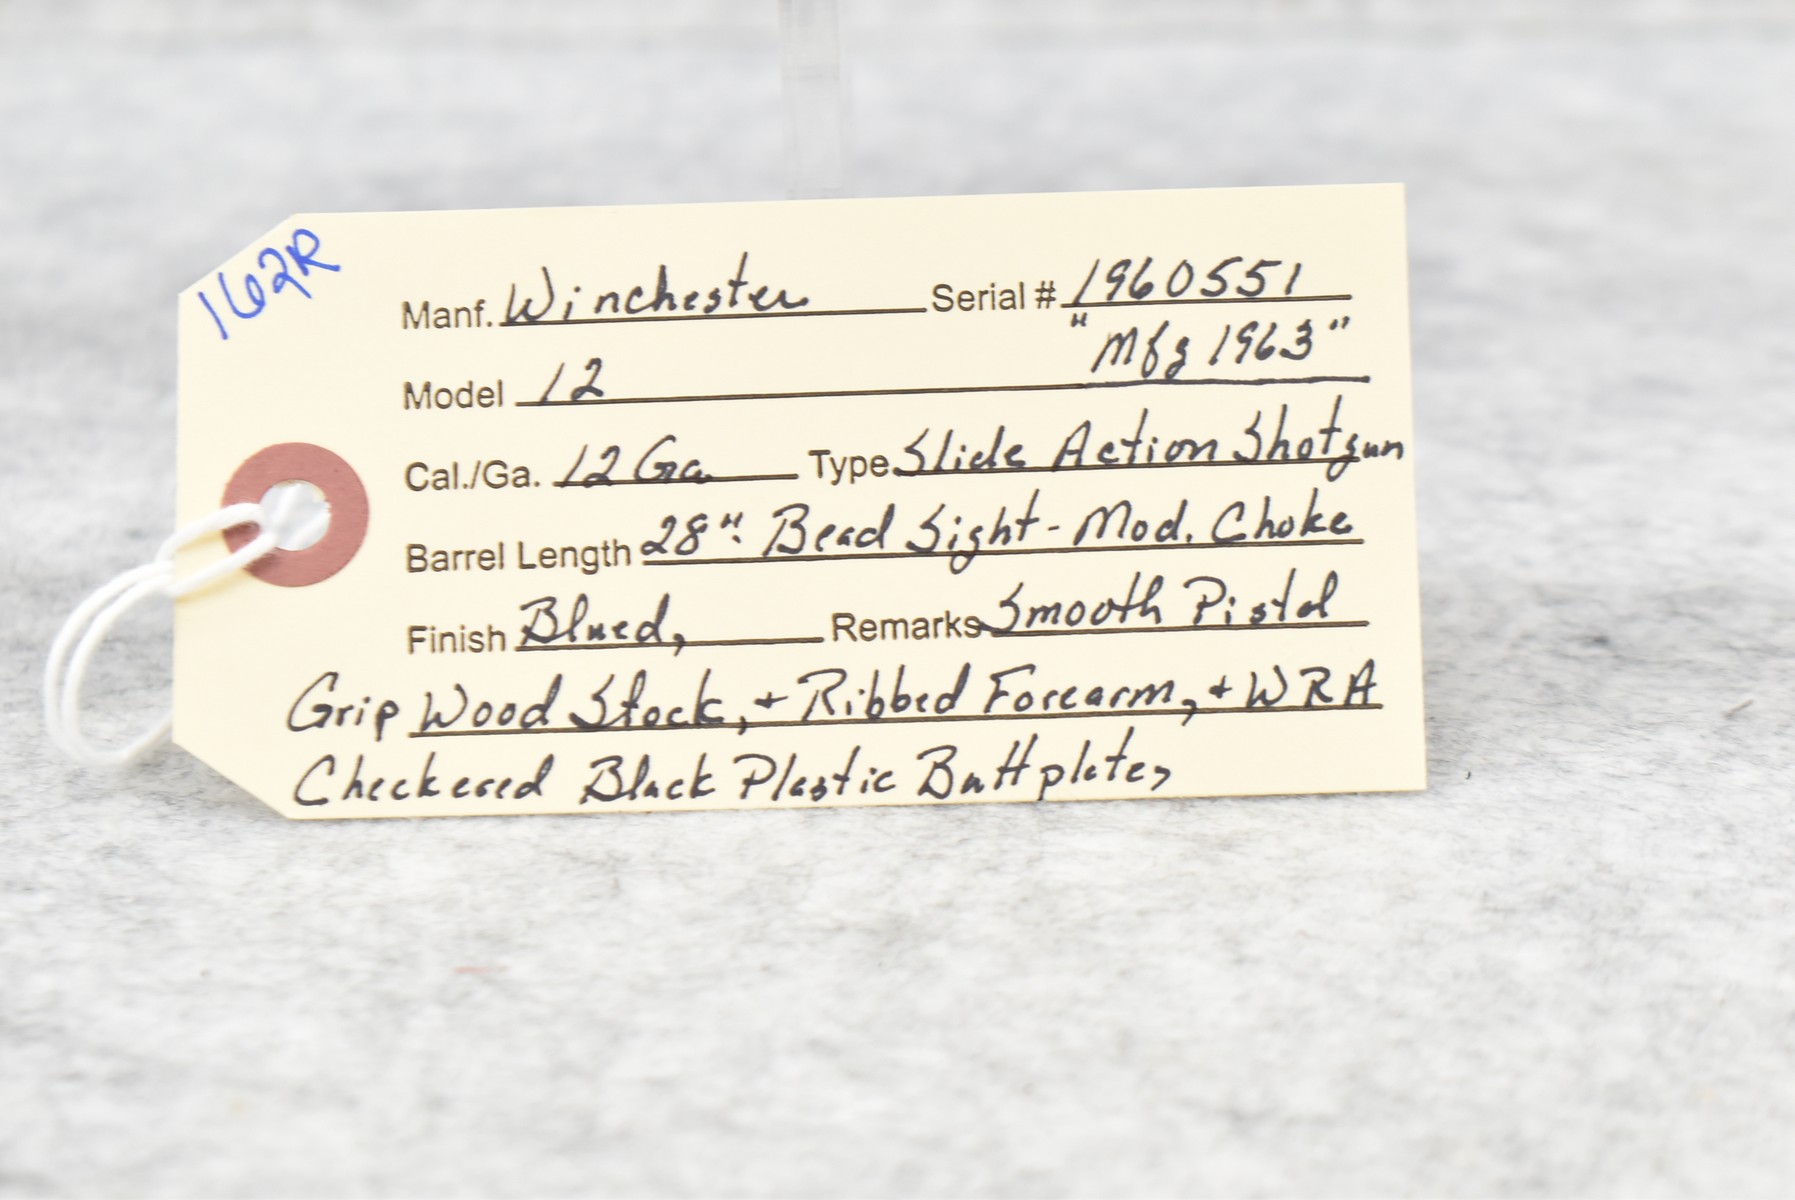 162R
Manf. Winchester Serial # 1960551
Model 12 "Mfg 1963"
Cal./Ga. 12 Ga Type Slide Action Shotgun
Barrel Length 28". Bead Sight - Mod. Choke
Finish Blued, Remarks Smooth Pistol
Grip Wood Stock, + Ribbed Forearm, + WRA
Checkered Black Plastic Buttplate,